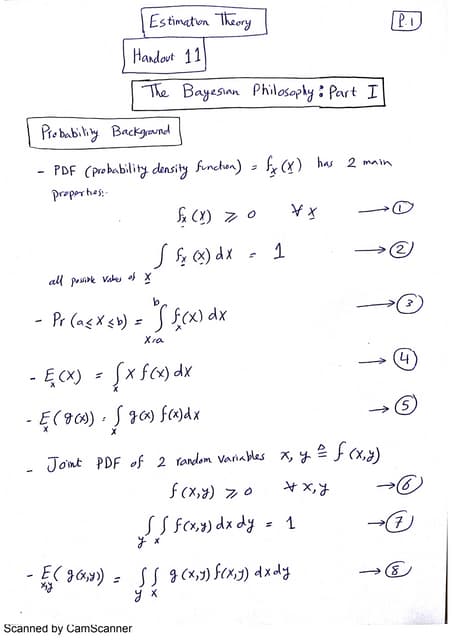 Estimation Theory
P.1
Handout 11
The Bayesian Philosophy: Part I
Probability Background
- PDF (probability density function) = fₓ(x) has 2 main
properties:-
fₓ(x) ⩾ 0 ∀ x → ①
∫ fₓ(x) dx = 1 → ②
all possible values of x
- Pr (a ≤ X ≤ b) = ∫ᵇₓ₌ₐ fₓ(x) dx → ③
- Eₓ(x) = ∫ₓ x f(x) dx → ④
- Eₓ(g(x)) = ∫ₓ g(x) f(x) dx → ⑤
- Joint PDF of 2 random variables x, y ≜ f(x,y)
f(x,y) ⩾ 0 ∀ x,y → ⑥
∫_y ∫_x f(x,y) dx dy = 1 → ⑦
- E_{x,y}(g(x,y)) = ∫_y ∫_x g(x,y) f(x,y) dx dy → ⑧
Scanned by CamScanner